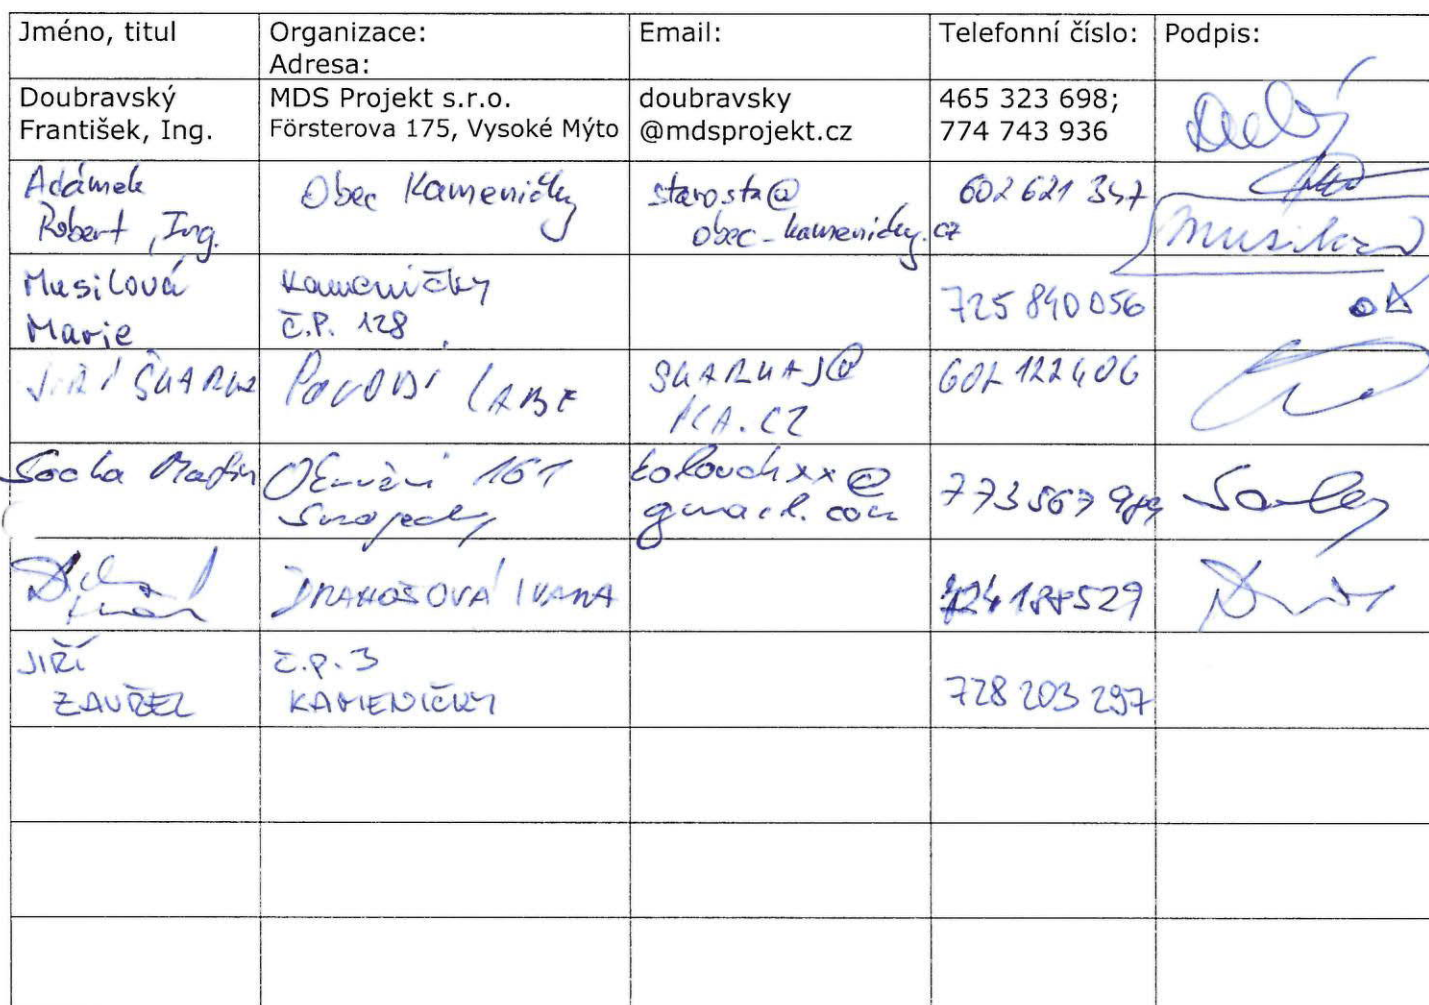 Jméno, titul
Organizace:
Adresa:
Email:
Telefonní číslo:
Podpis:
Doubravský
František, Ing.
MDS Projekt s.r.o.
Försterova 175, Vysoké Mýto
doubravsky
@mdsprojekt.cz
465 323 698;
774 743 936
Adámek
Robert, Ing.
Obec Kameničky
starosta@
obec-kamenicky.cz
602 621 347
Musilová
Musilová
Marie
Kameničky
č.p. 128
725 840 056
JIŘÍ
POVODÍ LABE
@
PLA.CZ
607 122 406
Socha Martin
161
kolouchxx@
gmail.com
773 567
DRAHOŠOVÁ IVANA
724 188 529
JIŘÍ
ZAVŘEL
č.p. 3
KAMENIČKY
728 203 297